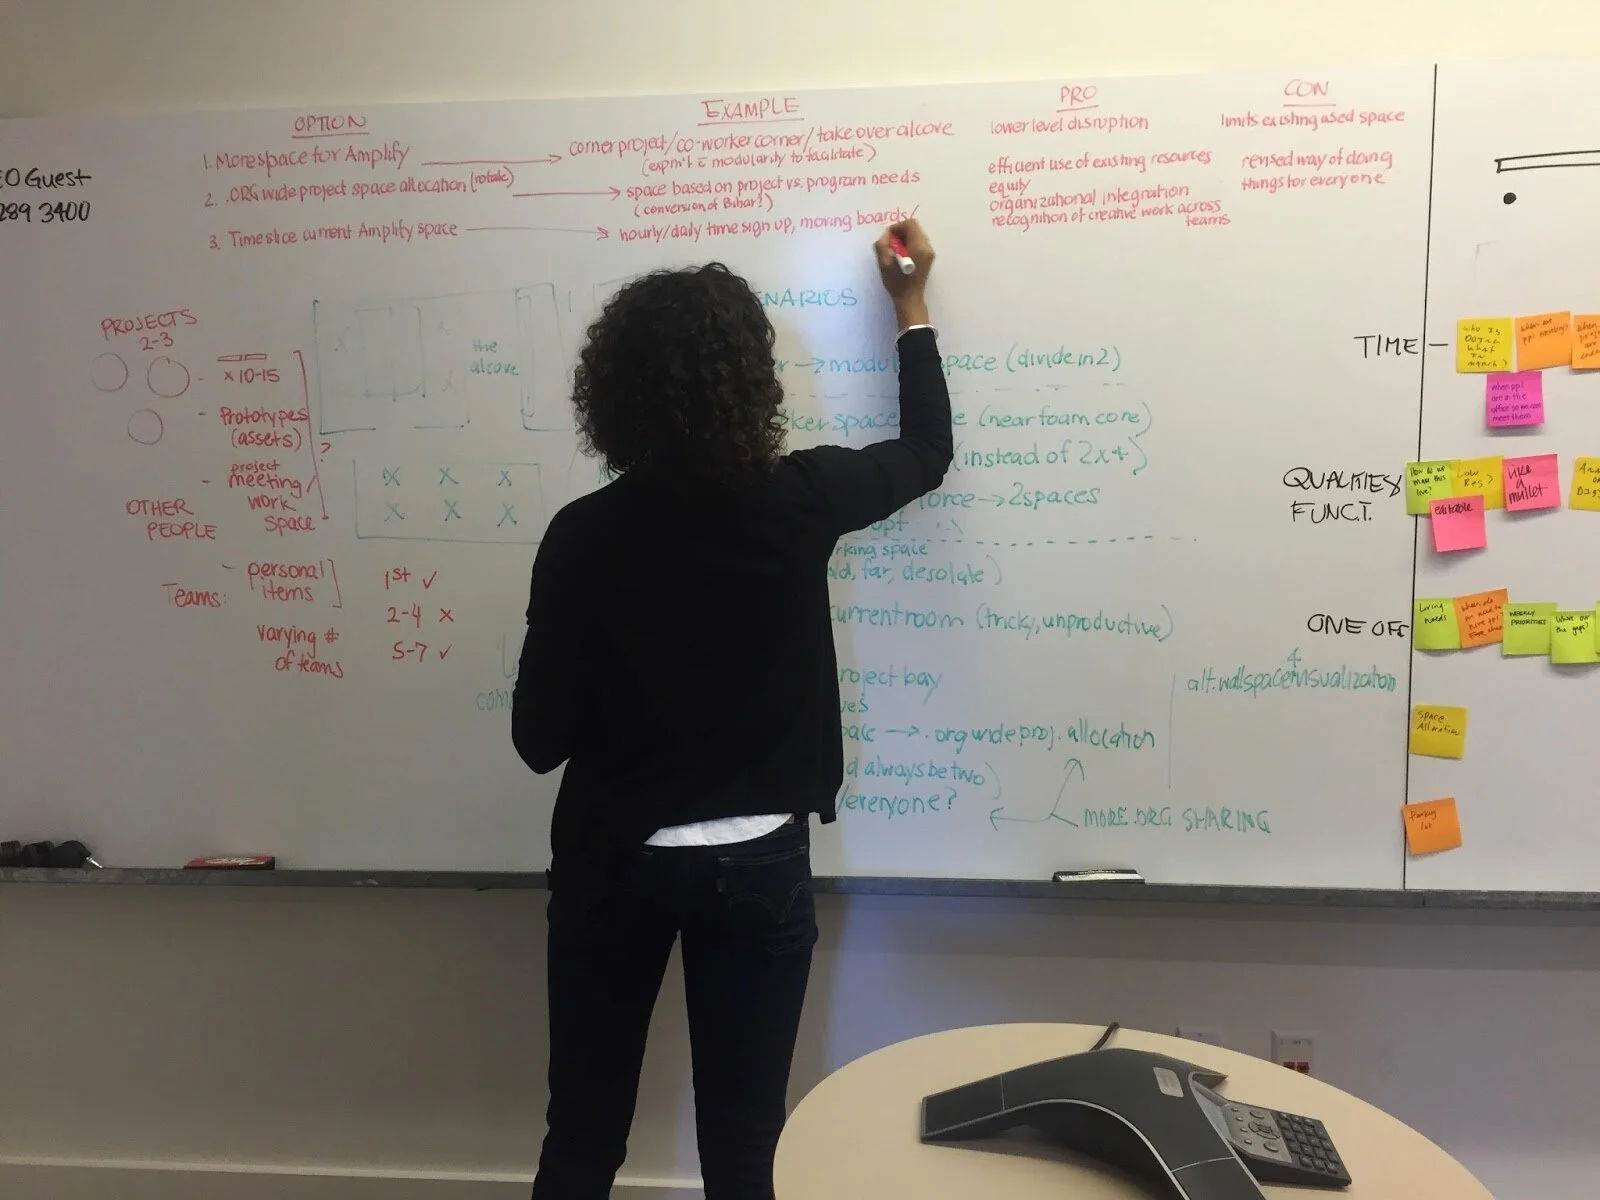 OPTION
EXAMPLE
PRO
CON
1. More space for Amplify
corner project/co-worker corner/take over alcove
modularity to facilitate)
lower level disruption
limits existing used space
2. .ORG wide project space allocation (rotate)
space based on project vs. program needs
(conversion of Bihar?)
efficient use of existing resources
equity
organizational integration
recognition of creative work across
teams
revised way of doing
things for everyone
3. Time slice current Amplify space
hourly/daily time sign up, moving boards/
EO Guest
289 3400
PROJECTS
2-3
x 10-15
- Prototypes
(assets)
- project
meeting/
work
space
?
OTHER
PEOPLE
Teams:
- personal
items
varying #
of teams
1st ✓
2-4 x
5-7 ✓
the
alcove
x x x
x x x
ENARIOS
space (divide in 2)
ker space
(near foam core)
(instead of 2x+)
force → 2 spaces
opt
rking space
far, desolate)
current room (tricky, unproductive)
roject bay
pace → .org wide proj. allocation
d always be two
/everyone?
MORE .ORG SHARING
4
alt. wallspace visualization
com
TIME -
Who is
doing
what
in
when ppl
are in the
office so we can
meet them
QUALITIES/
FUNCT.
How do we
make this
live?
Low
Res?
Like
a
mullet
editable
ONE OFF
Living
needs
WEEKLY
PRIORITIES
What are
the gaps?
Space
Allocation
Parking
lot